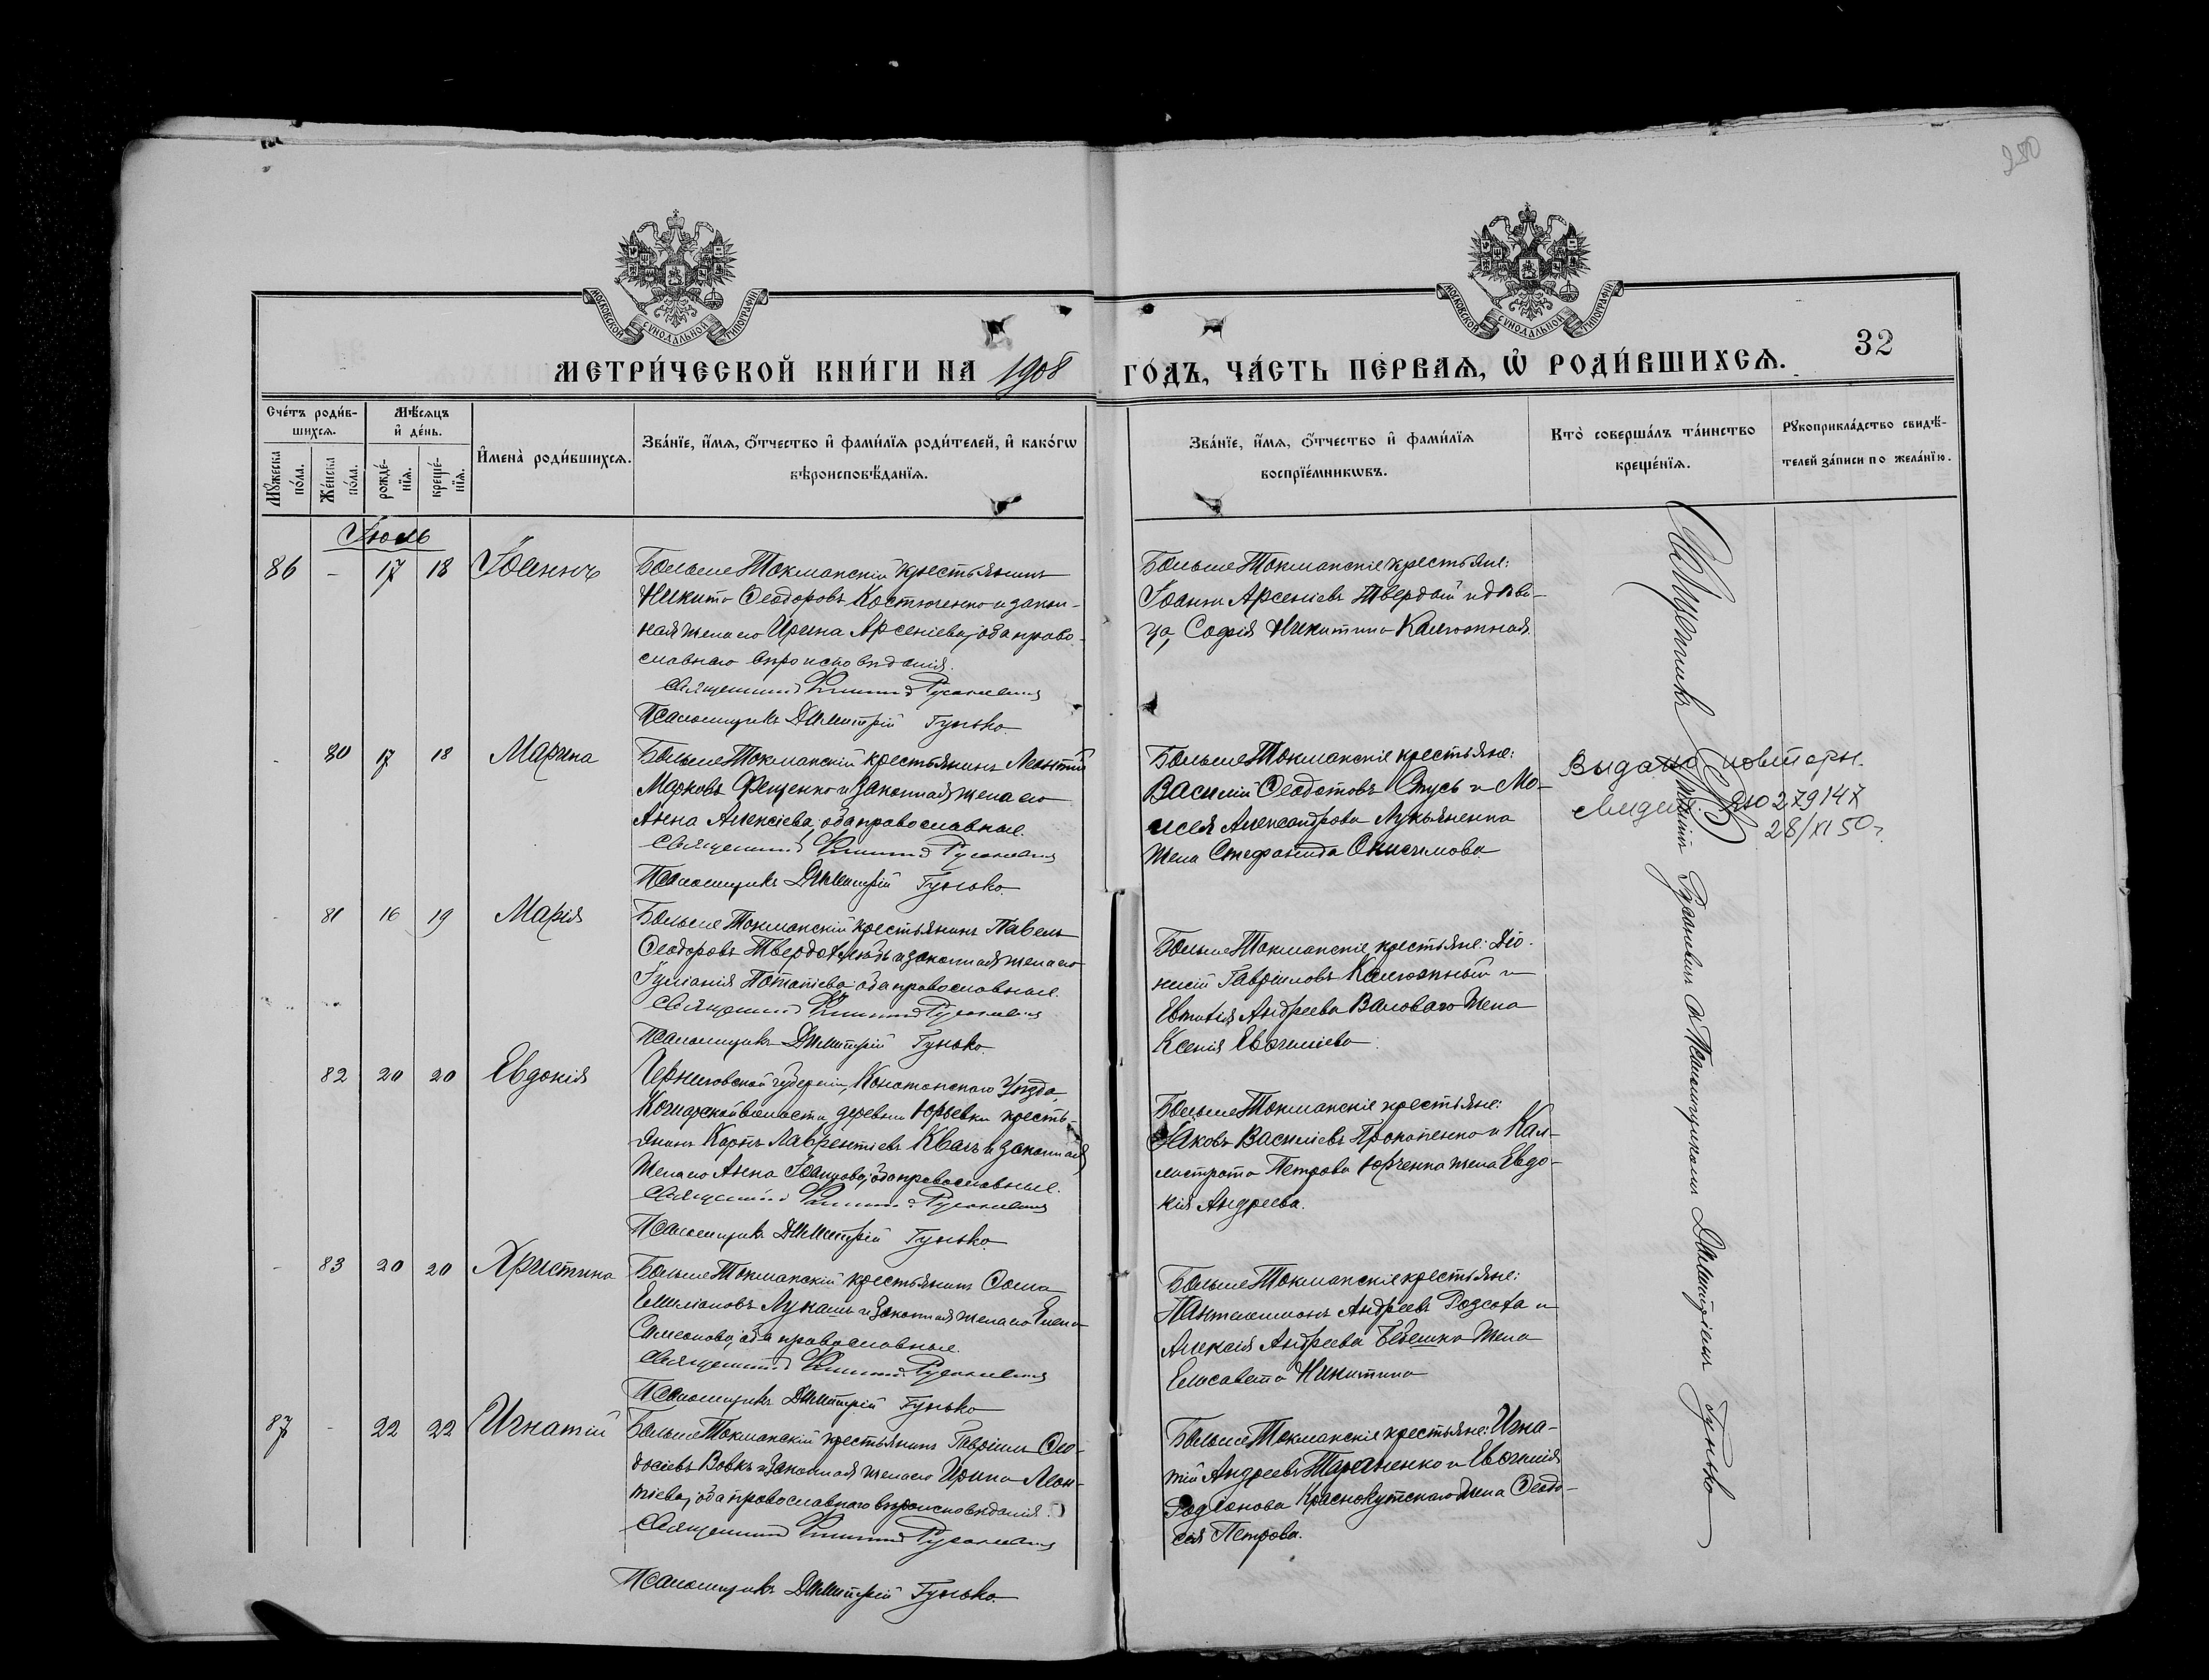 250
МОСКОВСКОЙ СУНОДАЛЬНОЙ ТИПОГРАФІИ
МОСКОВСКОЙ СУНОДАЛЬНОЙ ТИПОГРАФІИ
МЕТРИ́ЧЕСКОЙ КНИ́ГИ НА 1908 ГО́ДЪ, ЧА́СТЬ ПЕ́РВАѦ, Ѡ҆ РОДИ́ВШИХСѦ.
32
Сче́тъ роди́в-
шихсѧ.
Мꙋ́жеска
по́ла.
Же́нска
по́ла.
Мѣ́сѧцъ
и҆ де́нь.
рожде́-
нїѧ.
креще́-
нїѧ.
И҆мена̀ роди́вшихсѧ.
Зва́нїе, и҆́мѧ, ѻ҆́тчество и҆ фами́лїѧ роди́телей, и҆ како́гѡ
вѣроисповѣ́данїѧ.
Зва́нїе, и҆́мѧ, ѻ҆́тчество и҆ фами́лїѧ
воспрїе́мникѡвъ.
Кто̀ соверша́лъ та́инство
креще́нїѧ.
Рꙋкоприкла́дство свидѣ́-
телей за́писи по жела́нїю.
Іюль
86 - 17 18 Іоаннъ
Больше Токмакскій крестьянинъ
Никита Ѳеодоровъ Костюченко и закон-
ная жена его Ирина Арсеніева, оба право-
славнаго вѣроисповѣданія.
Священникъ
Псаломщикъ Димитрій Гунько.
Больше Токмакскіе крестьяне:
Іоаннъ Арсеніевъ Твердой и дѣви-
ца, Софія Никитина Калюжная.
- 80 17 18 Марина
Больше Токмакскій крестьянинъ Леонтій
Марковъ Фещенко и законная жена его
Анна Алексіева, оба православные.
Священникъ
Псаломщикъ Димитрій Гунько.
Больше Токмакскіе крестьяне:
Василій Ѳеодотовъ Стусь и Мо-
исея Александрова Лукьяненка
жена Стефанида Онисимова.
Выдано повторн.
ЯЮ 279147
28/XI 50 г.
- 81 16 19 Марія
Больше Токмакскій крестьянинъ Павелъ
Ѳеодоровъ Твердохлѣбъ и законная жена его
Іуліанія Потапіева, оба православные.
Священникъ
Псаломщикъ Димитрій Гунько.
Больше Токмакскіе крестьяне: Діо-
нисій Гавріиловъ Калюжный и
Евтихія Андреева Валоваго жена
Ксенія Евгеніева.
82 20 20 Евдокія
Черниговской губерніи, Конотопскаго уѣзда,
волости деревни Юрьевки кресть-
янинъ Карпъ Лаврентіевъ Квачъ и законная
жена его Анна Іоаннова, оба православные.
Священникъ
Псаломщикъ Димитрій Гунько.
Больше Токмакскіе крестьяне:
Іаковъ Василіевъ Прокопенко и Кал-
листрата Петрова Юрченка жена Евдо-
кія Андреева.
- 83 20 20 Христина
Больше Токмакскій крестьянинъ Ѳома
Емиліановъ Лукашъ и законная жена его Елена
Симеонова, оба православные.
Священникъ
Псаломщикъ Димитрій Гунько
Больше Токмакскіе крестьяне:
Пантелеимонъ Андреевъ Розсоха и
Алексія Андреева жена
Елисавета Никитина
87 - 22 22 Игнатій
Больше Токмакскій крестьянинъ Гавріилъ Ѳео-
досіевъ Вовкъ и законная жена его Ирина Леон-
тіева, оба православнаго вѣроисповѣданія.
Священникъ
Псаломщикъ Димитрій Гунько.
Больше Токмакскіе крестьяне: Игна-
тій Андреевъ Тараненко и Евгенія
Родіонова Краснокутскаго жена Ѳеодо-
сія Петрова.
Священникъ
и Псаломщикомъ Димитріемъ Гунько